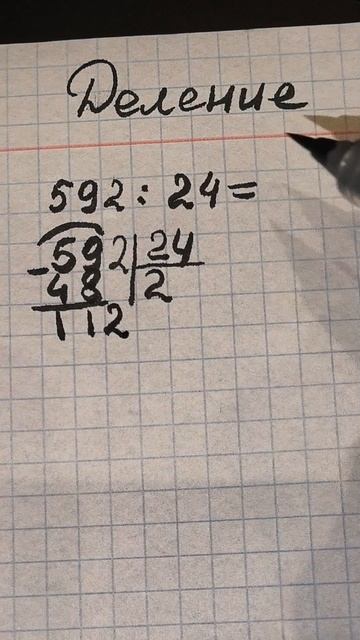 Деление
592 : 24 =
- 592 | 24
48 | 2
112